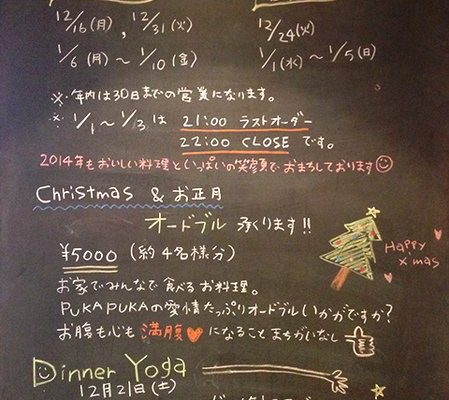 12/16(月), 12/31(火)
12/24(火)
1/6(月)～1/10(金)
1/1(水)～1/5(日)
※年内は30日までの営業になります。
※1/1～1/3は 21:00 ラストオーダー
22:00 CLOSE です。
2014年もおいしい料理といっぱいの笑顔でおまちしております
Christmas & お正月
オードブル 承ります!!
¥5000 (約4名様分)
Happy
X'mas
お家でみんなで食べるお料理。
PUKAPUKAの愛情たっぷりオードブルいかがですか?
お腹も心も満腹♥になることまちがいなし
Dinner Yoga
12月21日(土)